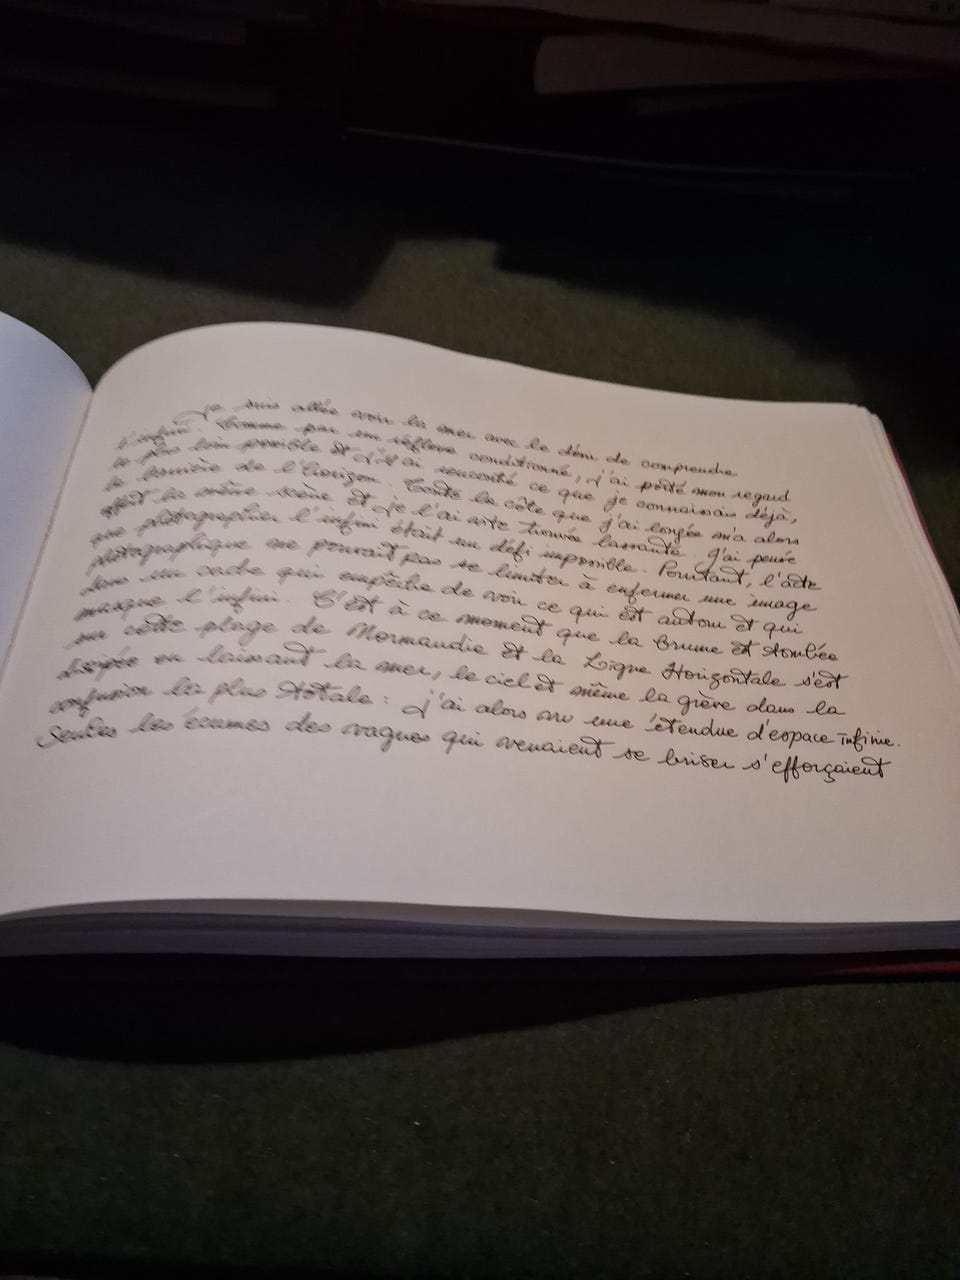 Je suis allée voir la mer avec le désir de comprendre
l'infini. Comme par un réflexe conditionné, j'ai porté mon regard
le plus loin possible et j'y ai rencontré ce que je connaissais déjà,
la barrière de l'horizon. Toute la côte que j'ai longée m'a alors
offert la même scène et je l'ai vite trouvée lassante. J'ai pensé
que photographier l'infini était un défi impossible. Pourtant, l'acte
photographique ne pouvait pas se limiter à enfermer une image
dans un cadre qui empêche de voir ce qui est autour et qui
masque l'infini. C'est à ce moment que la brume est tombée
sur cette plage de Normandie et la Ligne Horizontale s'est
dissipée en laissant la mer, le ciel et même la grève dans la
confusion la plus totale : j'ai alors vu une étendue d'espace infinie.
Seules les écumes des vagues qui venaient se briser s'efforçaient